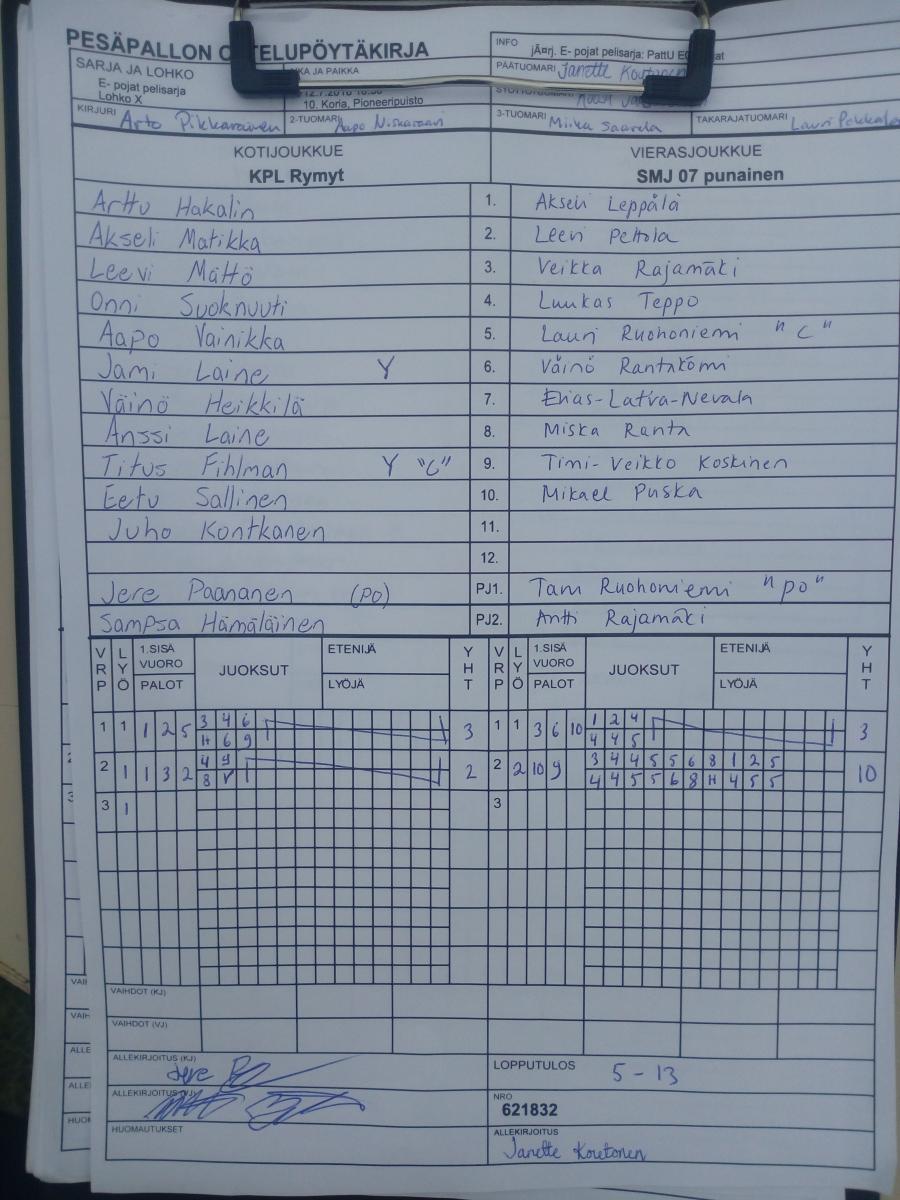 PESÄPALLON
TELUPÖYTÄKIRJA
INFO
jĤrj. E- pojat pelisarja: PattU
SARJA JA LOHKO
E- pojat pelisarja
Lohko X
KA JA PAIKKA
10. Koria, Pioneeripuisto
PÄÄTUOMARI Janette
KIRJURI Arto Pikkarainen
2-TUOMARI Aapo Niskanen
3-TUOMARI Miika Saarela
TAKARAJATUOMARI Lauri
KOTIJOUKKUE
KPL Rymyt
VIERASJOUKKUE
SMJ 07 punainen
Arttu Hakalin 1. Akseli Leppälä
Akseli Matikka 2. Leevi Peltola
Leevi Mättö 3. Veikka Rajamäki
Onni Suoknuuti 4. Luukas Teppo
Aapo Vainikka 5. Lauri Ruohoniemi "C"
Jami Laine Y 6. Väinö Rantakömi
Väinö Heikkilä 7. Elias-Latva-Nevala
Anssi Laine 8. Miska Ranta
Titus Fihlman Y "C" 9. Timi-Veikko Koskinen
Eetu Sallinen 10. Mikael Puska
Juho Kontkanen 11.
12.
Jere Paananen (PO) PJ1. Tam Ruohoniemi "po"
Sampsa Hämäläinen PJ2. Antti Rajamäki
VRP LYÖ 1.SISÄ VUORO PALOT JUOKSUT ETENIJÄ LYÖJÄ YHT VRP LYÖ 1.SISÄ VUORO PALOT JUOKSUT ETENIJÄ LYÖJÄ YHT
1 1 1 2 5 3 4 6 3 1 1 3 6 10 1 2 4 3
H 6 9 4 4 5
2 1 1 3 2 4 9 2 2 2 10 9 3 4 4 5 5 6 8 1 2 5 10
8 V 4 4 5 5 6 8 H 4 5 5
3 1 3
VAIHDOT (KJ)
VAIHDOT (VJ)
ALLEKIRJOITUS (KJ) Jere
LOPPUTULOS 5 - 13
ALLEKIRJOITUS (VJ)
NRO
621832
HUOMAUTUKSET
ALLEKIRJOITUS
Janette Koutonen